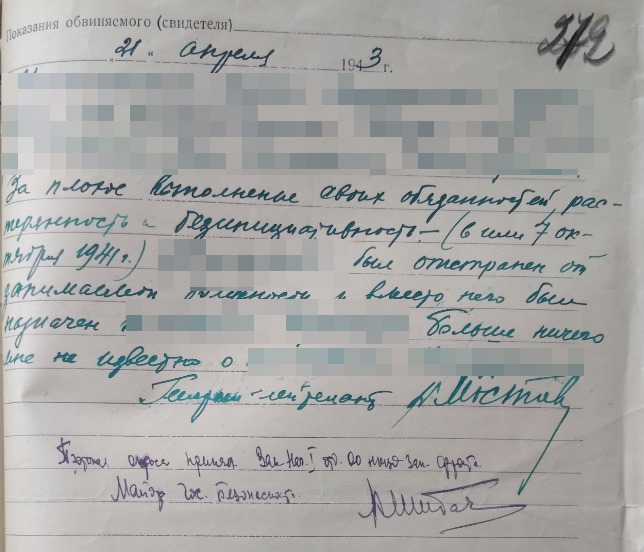 272
Показания обвиняемого (свидетеля)
„21“ апреля 1943 г.
За плохое выполнение своих обязанностей рас-
терянность и безинициативность – (6 или 7 ок-
тября 1941 г.) был отстранен от
занимаемой должности и вместо него был
назначен Больше ничего
мне не известно о
Генерал-лейтенант
Протокол опроса принял Зам Нач. I отд.
Майор Гос. Безопасност.